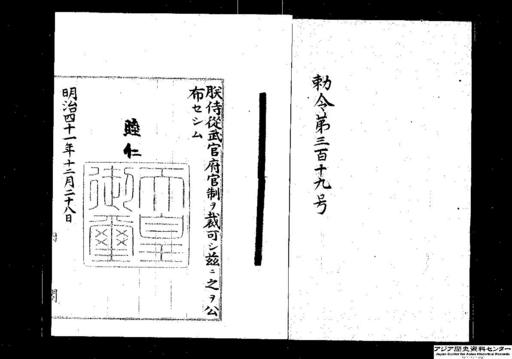 勅令第三百十九号
朕侍從武官府官制ヲ裁可シ茲ニ之ヲ公
布セシム
睦仁
天皇
御璽
明治四十一年十二月二十八日
内
閣
アジア歴史資料センター
Japan Center for Asian Historical Records